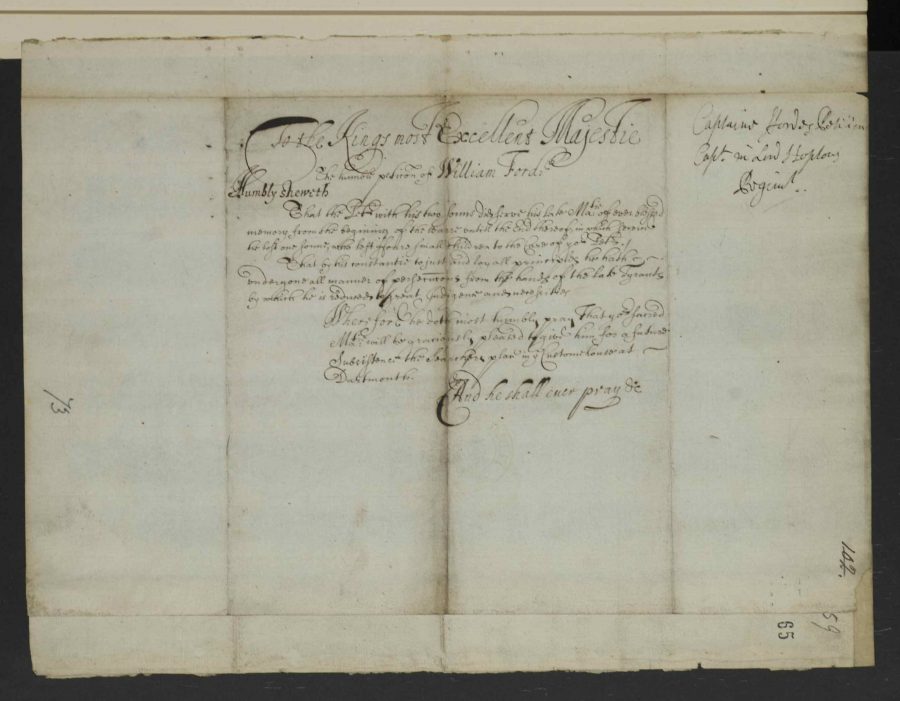 To the Kings most Excellent Majestie
The humble peticon of William Forde
Humbly sheweth
That the Petr with his two sonns did serve his late Matie of ever blessed
memory from the beginning of the warre untill the end thereof, in which service
he lost one sonne, who left fowre small children to the Care of yor Petr.
That by his constantcie to just and loyall principles he hath
undergone all manner of persecucons from the hands of the late Tyrants
by which he is reduced to great Indigence and necessities
Wherefore he doth most humbly pray That yor sacred
Matie will be graciously pleased to give him for a future
Subsistence the Searchers place in ye Custome house at
Dartmouth.
And he shall ever pray &c
Captaine Fordes Peticon
Capt. in Lord Hoptons
Regimt.
73
102.
59
65